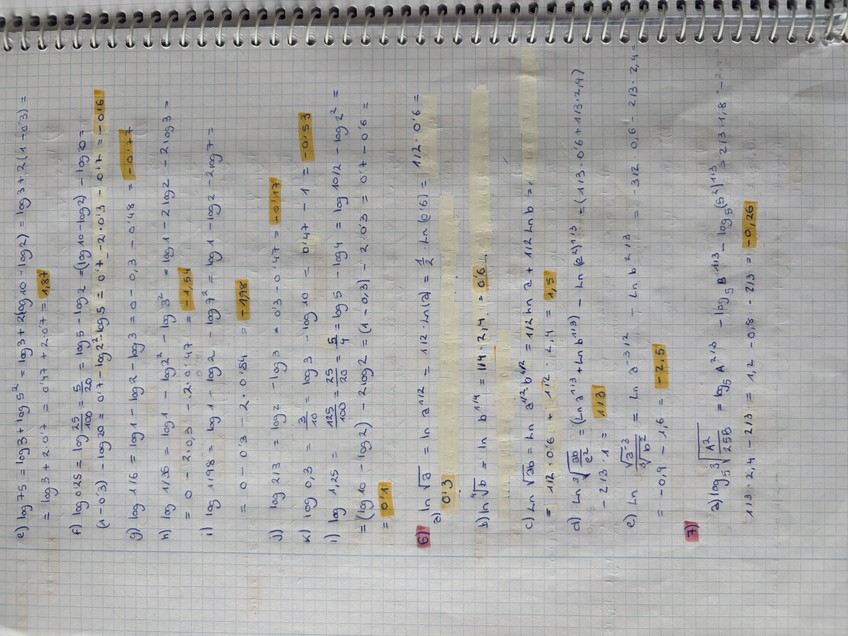 e) log 75 = log 3 + log 5² = log 3 + 2(log 10 - log 2) = log 3 + 2(1 - 0'3) =
= log 3 + 2·0'7 = 0'47 + 2·0'7 = 1,87
f) log 0'25 = log 25/100 = 5/20 = log 5 - log 2 = (log 10 - log 2) - log 20 =
(1 - 0'3) - log 20 = 0'7 - log 2² - log 5 = 0'7 - 2·0'3 - 0'7 = -0'6
g) log 1/6 = log 1 - log 2 - log 3 = 0 - 0,3 - 0'48 = -0'77
h) log 1/36 = log 1 - log 2² - log 3² = log 1 - 2 log 2 - 2 log 3 =
= 0 - 2·0,3 - 2·0'47 = -1,54
i) log 1/98 = log 1 - log 2 - log 7² = log 1 - log 2 - 2 log 7 =
= 0 - 0'3 - 2·0'84 = -1,98
j) log 2/3 = log 2 - log 3 = 0'3 - 0'47 = -0'17
k) log 0,3 = 3/10 = log 3 - log 10 = 0'47 - 1 = -0'53
l) log 1,25 = 125/100 = 25/20 = 5/4 = log 5 - log 4 = log 10/2 - log 2² =
= (log 10 - log 2) - 2 log 2 = (1 - 0,3) - 2·0'3 = 0'7 - 0'6 =
= 0'1
6)
a) ln √a = ln a^1/2 = 1/2 · ln(a) = 1/2 · ln(0'6) = 1/2 · 0'6 =
0'3
b) ln ⁴√b = ln b^1/4 = 1/4 · 2,4 = 0'6
c) Ln √ab = Ln a^1/2 b^1/2 = 1/2 ln a + 1/2 Ln b =
= 1/2 · 0'6 + 1/2 · 2,4 = 1,5
d) Ln ³√ab/e² = (Ln a^1/3 + Ln b^1/3) - Ln (e²)^1/3 = (1/3 · 0'6 + 1/3 · 2,4)
- 2/3 · 1 = 1/3
e) Ln √a^-3 / ³√b² = Ln a^-3/2 - Ln b^2/3 = -3/2 · 0,6 - 2/3 · 2,4 =
= -0,9 - 1,6 = -2,5
7)
a) log₅ ³√A²/25B = log₅ A^2/3 - log₅ B^1/3 - log₅ (5²)^1/3 = 2/3 · 1,8 -
1/3 · 2,4 - 2/3 = 1,2 - 0,8 - 2/3 = -0,26